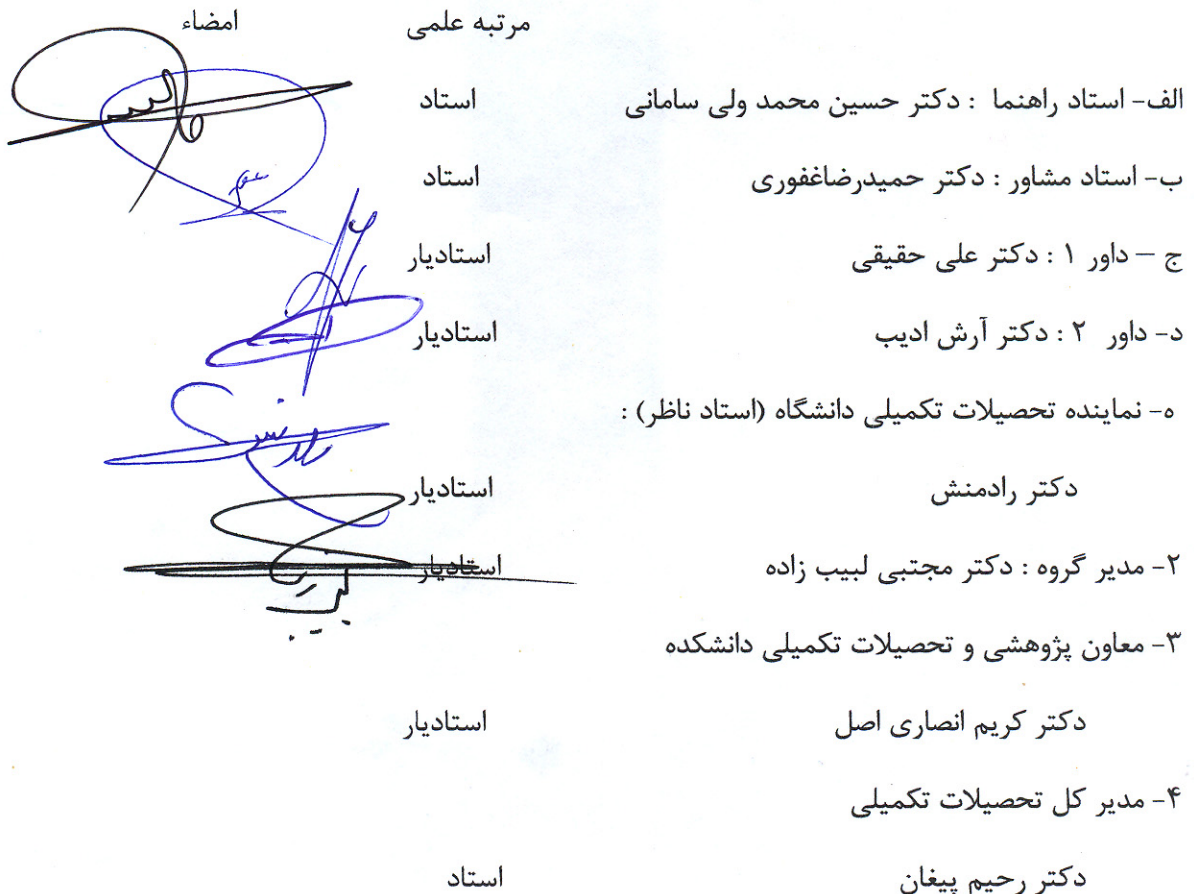 مرتبه علمی امضاء
الف- استاد راهنما : دکتر حسین محمد ولی سامانی استاد
ب- استاد مشاور : دکتر حمیدرضاغفوری استاد
ج – داور ۱ : دکتر علی حقیقی استادیار
د- داور ۲ : دکتر آرش ادیب استادیار
ه- نماینده تحصیلات تکمیلی دانشگاه (استاد ناظر) :
دکتر رادمنش استادیار
۲- مدیر گروه : دکتر مجتبی لبیب زاده استادیار
۳- معاون پژوهشی و تحصیلات تکمیلی دانشکده
دکتر کریم انصاری اصل استادیار
۴- مدیر کل تحصیلات تکمیلی
دکتر رحیم پیغان استاد